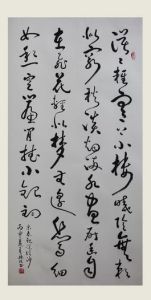 漠漠轻寒上小楼晓阴无赖
似穷秋淡烟流水画屏幽自
在飞花轻似梦无边丝雨细
如愁宝帘闲挂小银钩